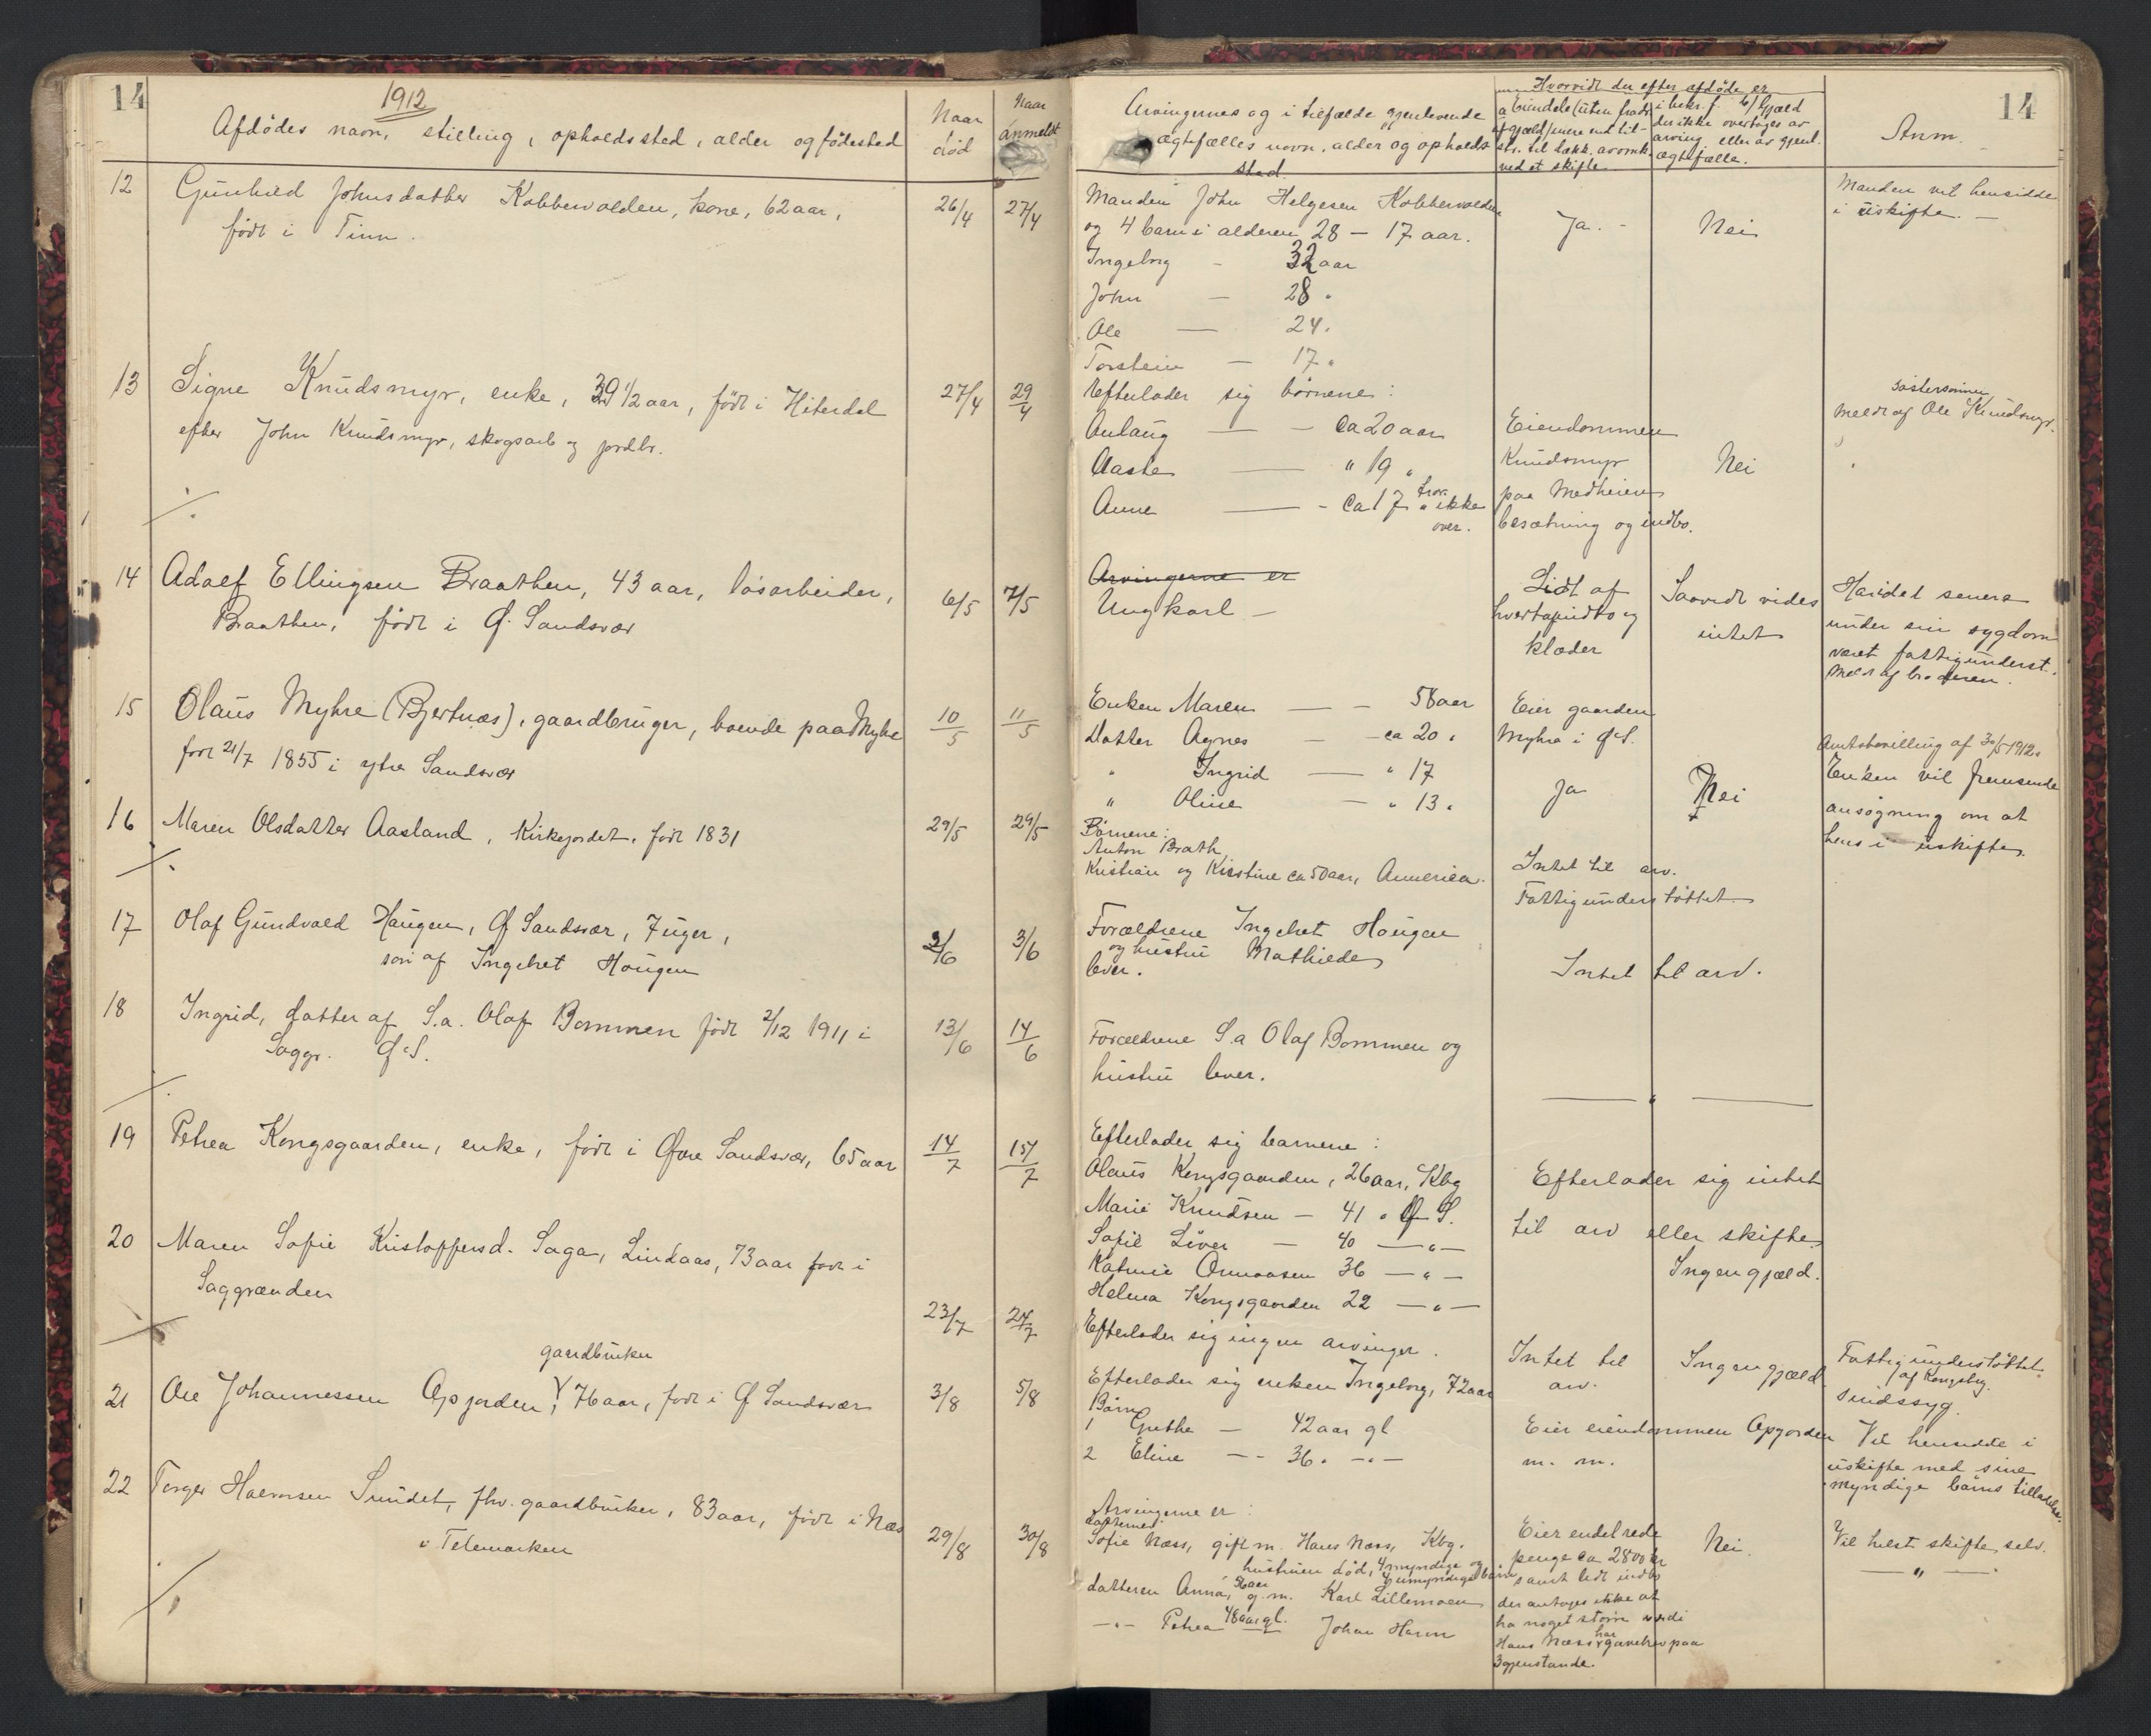 14
1912
Afdödes navn, stilling, opholdssted, alder og födested
Naar
död
Naar
anmeldt
12
Gunhild Johnsdatter Kobbervolden, kone, 62 aar,
född i Tinn.
26/4
27/4
13
Signe Knudsmyr, enke, 39 1/2 aar, född i Hiterdal
efter John Knudsmyr, skogsarb og jordbr.
27/4
29/4
14
Adolf Ellingsen Braathen, 43 aar, løsarbeider,
Braathen, född i Ø. Sandsvær
6/5
7/5
15
Olaus Myhre (Bjertnæs), gaardbruger, boende paa Myhre
født 21/7 1855 i ytre Sandsvær
10/5
11/5
16
Maren Olsdatter Aasland, Kirkejordet, født 1831
29/5
29/5
17
Olaf Gundvald Haugen, Ø Sandsvær, 7 uger,
søn af Ingebret Hougen
2/6
3/6
18
Ingrid, datter af S.a. Olaf Bommen född 2/12 1911 i
Saggr. Ø.S.
13/6
14/6
19
Petrea Kongsgaarden, enke, född i Øvre Sandsvær, 65 aar
14/7
15/7
20
Maren Sofie Kristoffersd. Saga, Lindaas, 73 aar född i
Saggrænden
23/7
24/7
gaardbruker
21
Ole Johannessen Opjorden, 76 aar, född i Ø Sandsvær
3/8
5/8
22
Torger Halvorsen Sundet, fhv. gaardbruker, 83 aar, född i Næs
i Telemarken
29/8
30/8
14
Arvingernes og i tilfælde gjenlevende
ægtefælles navn, alder og opholds
sted.
Hvorvidt der efter afdöde er
a Eiendele (uten fradr.
af gjæld) mere end til-
str. til dækk. av omk.
ved et skifte.
i bekr. f. b) Gjæld
der ikke overtages av
arving eller av gjenl.
ægtefælle.
Anm.
Manden John Helgesen Kobbervolden
og 4 barn i alderen 28 — 17 aar.
Ingeborg - 32 aar
John — 28 "
Ole — 24 "
Torstein — 17 "
Ja. -
Nei
Manden vil hensidde
i uskifte. —
Efterlader sig börnene:
Anlaug — - ca 20 aar
Aaste — " 19 "
Anne — - ca 17 " tror ikke
over.
Eiendommen
Knudsmyr
paa Medheien
besætning og indbo.
Nei
søstersønnen
Meldt af Ole Knudsmyr.
Arvingerne er
Ungkarl —
Lidt af
hvert af indbo og
klæder
Saavidt vides
intet
Havdet senere
under sin sygdom
været fattigunderst.
Meldt af broderen.
Enken Maren — - 58 aar
Datter Agnes - - ca 20 "
" Ingrid — " 17
" Oline — " 13 "
Eier gaarden
Myhre i Ø.S.
Ja
Nei
Amtsbevilling af 30/5 1912.
Enken vil fremsende
ansøgning om at
hens i uskifte.
Börnene:
Anton Brath
Kristian og Kirstine ca 50 aar, Amerika.
Intet til arv.
Fattigunderstøttet.
Forældrene Ingebret Hougen
og hustru Mathilde
lever.
Intet til arv.
Forældrene S.a Olaf Bommen og
hustru lever.
— " —
Efterlader sig barnene:
Olaus Kongsgaarden, 26 aar, Kbg
Marie Knudsen — 41 " Ø S.
Sofie Liver — 40 — " —
Katrine 36 — " —
Helena Kongsgaarden 22 — " —
Efterlader sig intet
til arv eller skifte
Ingen gjæld.
Efterlader sig ingen arvinger.
Intet til
arv.
Ingen gjæld
Fattigunderstøttet
af Kongsberg.
Sindssyg.
Efterlader sig enken Ingeborg, 72 aar
Börn
1 Grethe — 42 aar gl
2 Eline — - 36 " - " -
Eier eiendommen Opjorden
m. m.
Vil hensidde i
uskifte med sine
myndige barns tilladelse.
Arvingerne er:
datteren
Sofie Næss, gift m. Hans Næss, Kbg.
hustruen död, 4 myndige og
umyndige barn
datteren Anna, 56 aar g. m. Karl Lillemoen
— " — Petrea 48 aar gl. Johan
Eier endel rede
penge ca 2800 kr
samt lidt indbo
der antages ikke at
ha noget större værdi
Hans Næss har gavebrev paa
3 gjenstande.
Nei.
Vil helst skifte selv.
— " —